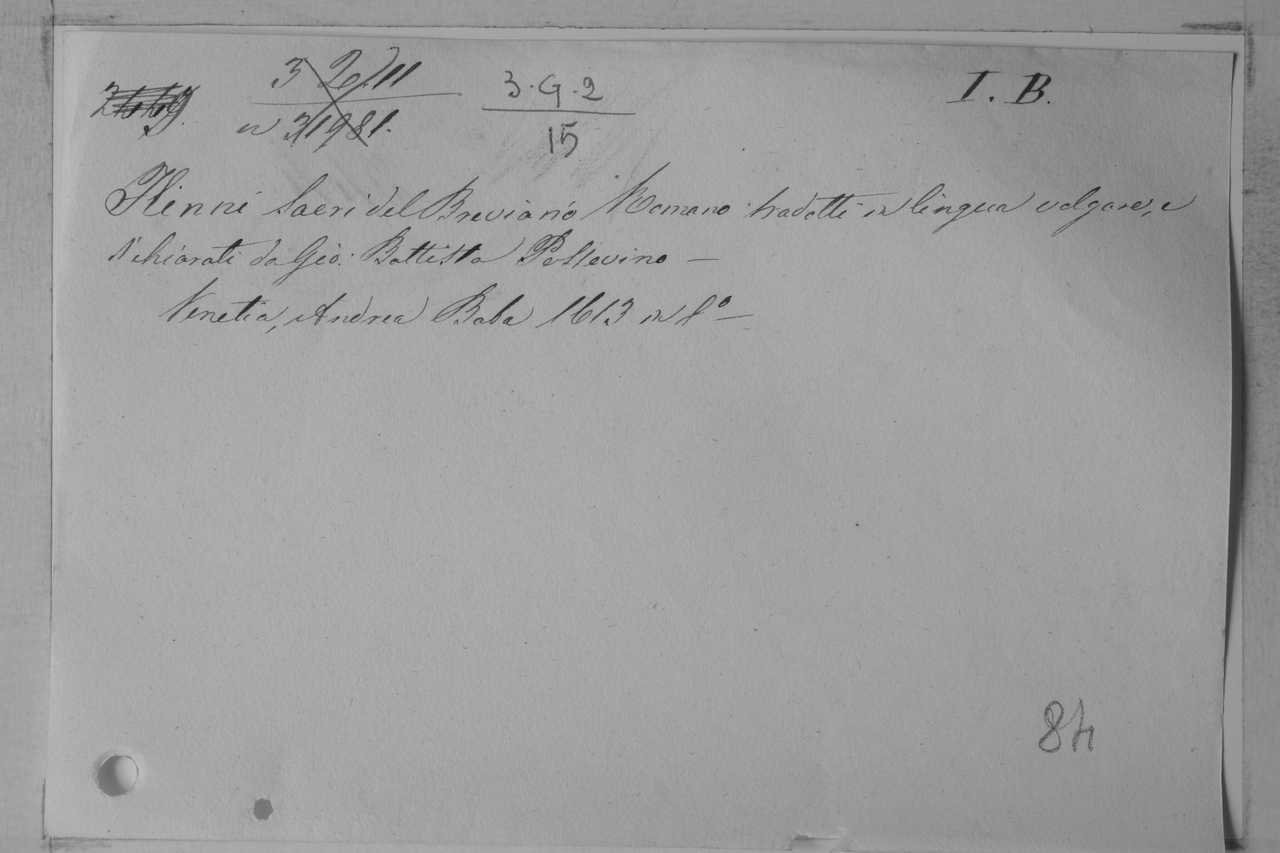 3 26/11 3. G. 2 I. B.
n 31981. 15
Hinni Sacri del Breviario Romano tradotti in lingua volgare, e
dichiarati da Gio: Battista Possevino —
Venetia, Andrea Baba 1613 in 8º —
84